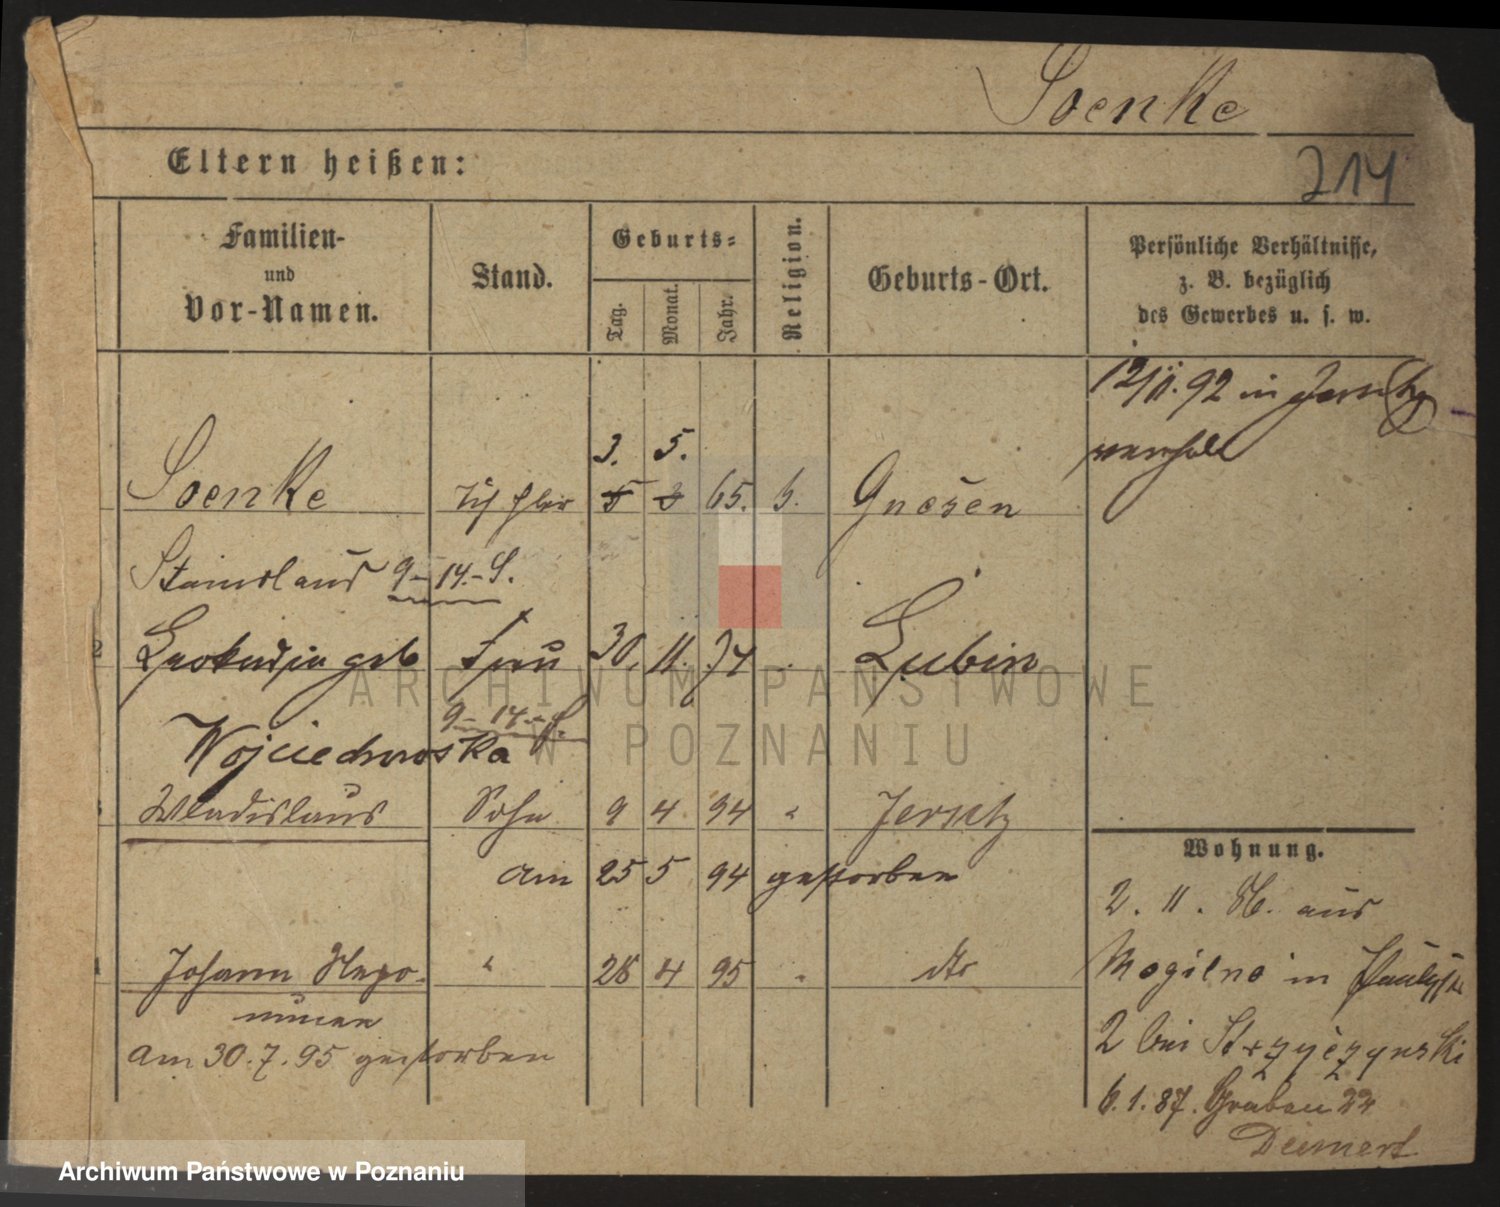 Soenke
214
Eltern heißen:
Familien-
und
Vor-Namen.
Stand.
Geburts=
Tag.
Monat.
Jahr.
Religion.
Geburts-Ort.
Persönliche Verhältnisse,
z. B. bezüglich
des Gewerbes u. s. w.
12/11.92 in Jersitz
3. 5.
Soenke Tischler 5 3 65. k. Gnesen
Stanislaus 9-14.-S.
2 Leokadja geb Frau 30. 11. 74 Lubin
9-14.-S.
Wojciechowska
Wladislaus Sohn 9 4 94 " Jersitz
am 25 5 94 gestorben
Johann Nepo- " 28 4 95 " dto
mucen
am 30.7.95 gestorben
Wohnung.
2. 11. 86. aus
Mogilno in
2 bei Strzyczynski
6.1.87. Graben 22
ARCHIWUM PAŃSTWOWE
W POZNANIU
Archiwum Państwowe w Poznaniu